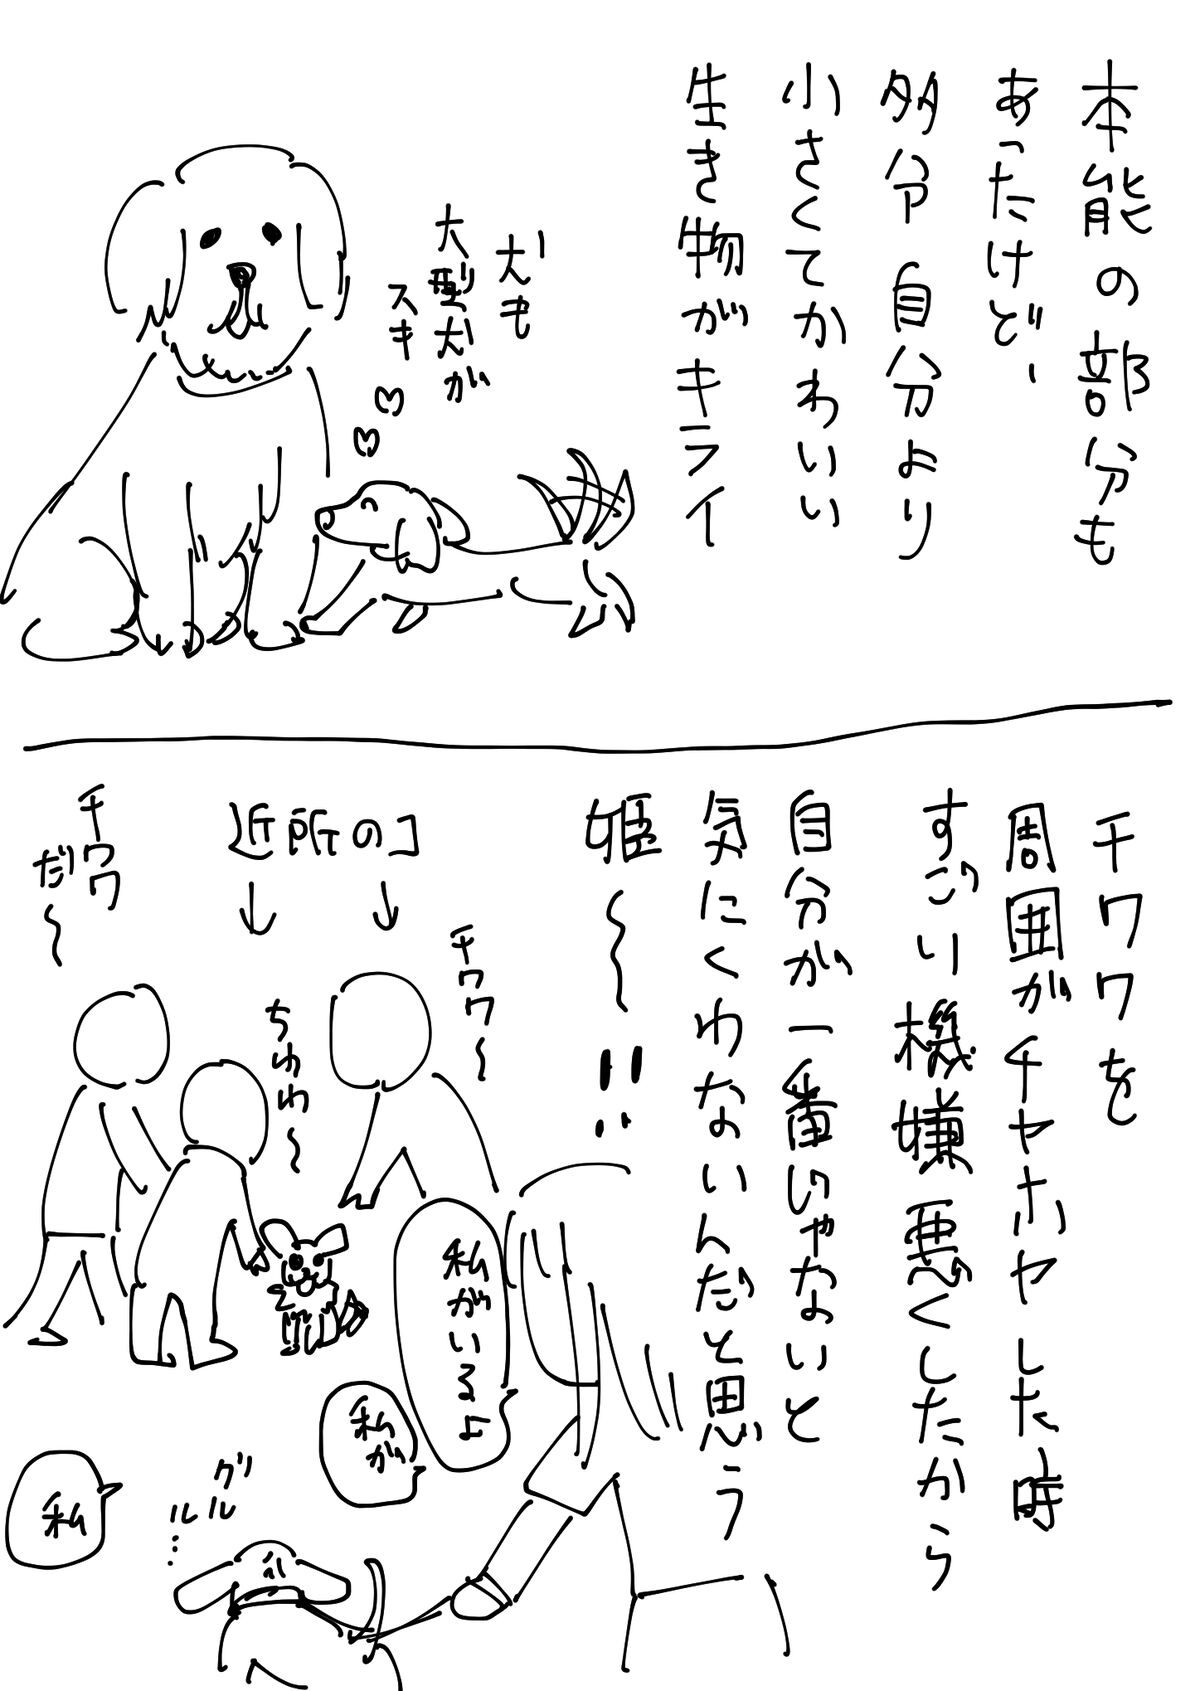 本能の部分も
あったけど、
多分自分より
小さくてかわいい
生き物がキライ
犬も
大型犬が
スキ
チワワを
周囲がチヤホヤした時
すごい機嫌悪くしたから
自分が一番じゃないと
気にくわないんだと思う
姫〜!!
チワワ〜
近所のコ
ちわわ〜
チワワ
だ〜
私がいるよ
私が
グル
ルル…
私